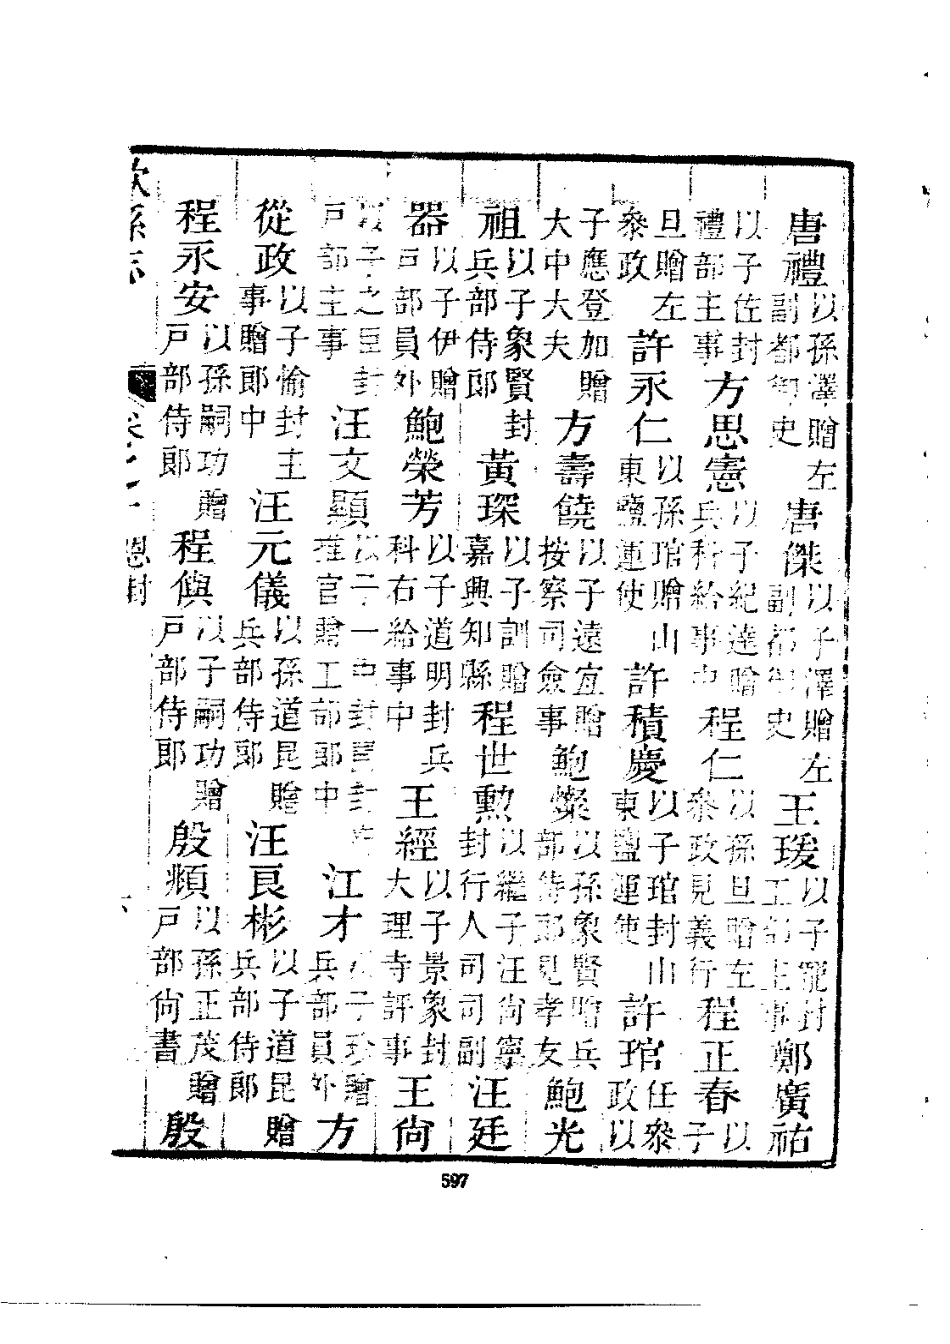 唐禮以孫澤贈左副都御史唐傑以子澤贈左副都御史王瑗以子寵封工部主事鄭廣祐
以子佐封禮部主事方思憲以子紀達贈兵科給事中程仁以孫旦贈左叅政見義行程正春以子
旦贈左叅政許永仁以孫琯贈山東鹽運使許積慶以子琯封山東鹽運使許琯任叅政以
子應登加贈大中大夫方壽饒以子遠宜贈按察司僉事鮑燦以孫象賢贈兵部侍郎見孝友鮑光
祖以子象賢封兵部侍郎黃琛以子訓贈嘉興知縣程世勲以繼子汪尙寧封行人司司副汪廷
器以子伊贈戶部員外鮑榮芳以子道明封兵科右給事中王經以子景象封大理寺評事王尙
以子之臣封戶部主事汪文顯以子一中封推官贈工部郎中江才以子珍贈兵部員外方
從政以子愉封主事贈郎中汪元儀以孫道昆贈兵部侍郎汪良彬以子道昆贈兵部侍郎
程永安以孫嗣功贈戶部侍郎程以子嗣功贈戶部侍郎殷頫以孫正茂贈戶部尙書殷
歙縣志 卷之 恩封
597